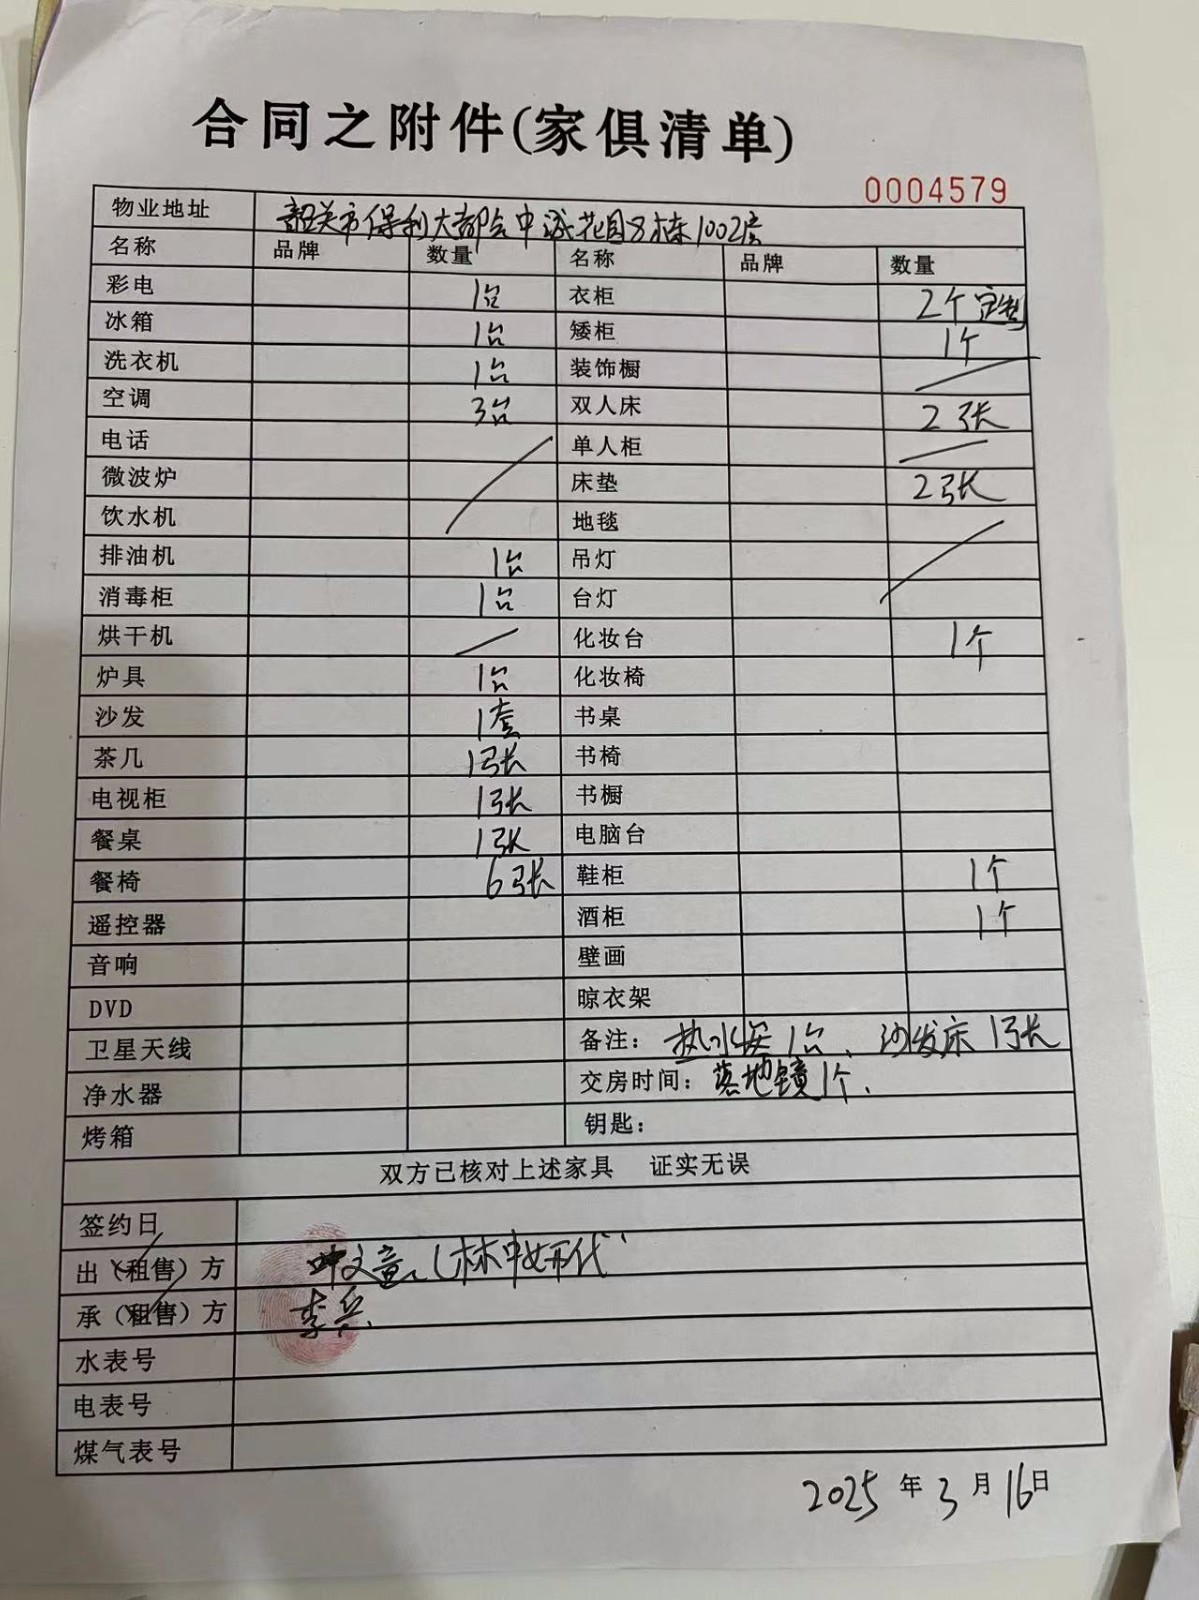 合同之附件(家俱清单)
0004579
物业地址 韶关市保利大都会中诚花园8栋1002房
名称 品牌 数量 名称 品牌 数量
彩电 1台 衣柜 2个定制
冰箱 1台 矮柜 1个
洗衣机 1台 装饰橱
空调 3台 双人床 2张
电话 单人柜
微波炉 床垫 2张
饮水机 地毯
排油机 1台 吊灯
消毒柜 1台 台灯
烘干机 化妆台 1个
炉具 1台 化妆椅
沙发 1套 书桌
茶几 1张 书椅
电视柜 1张 书橱
餐桌 1张 电脑台
餐椅 6张 鞋柜 1个
遥控器 酒柜 1个
音响 壁画
DVD 晾衣架
卫星天线 备注：热水器1台、沙发床1张
净水器 交房时间：落地镜1个、
烤箱 钥匙：
双方已核对上述家具 证实无误
签约日
出（租售）方 叶文章（林中妍代
承（租售）方 李兵
水表号
电表号
煤气表号
2025年3月16日